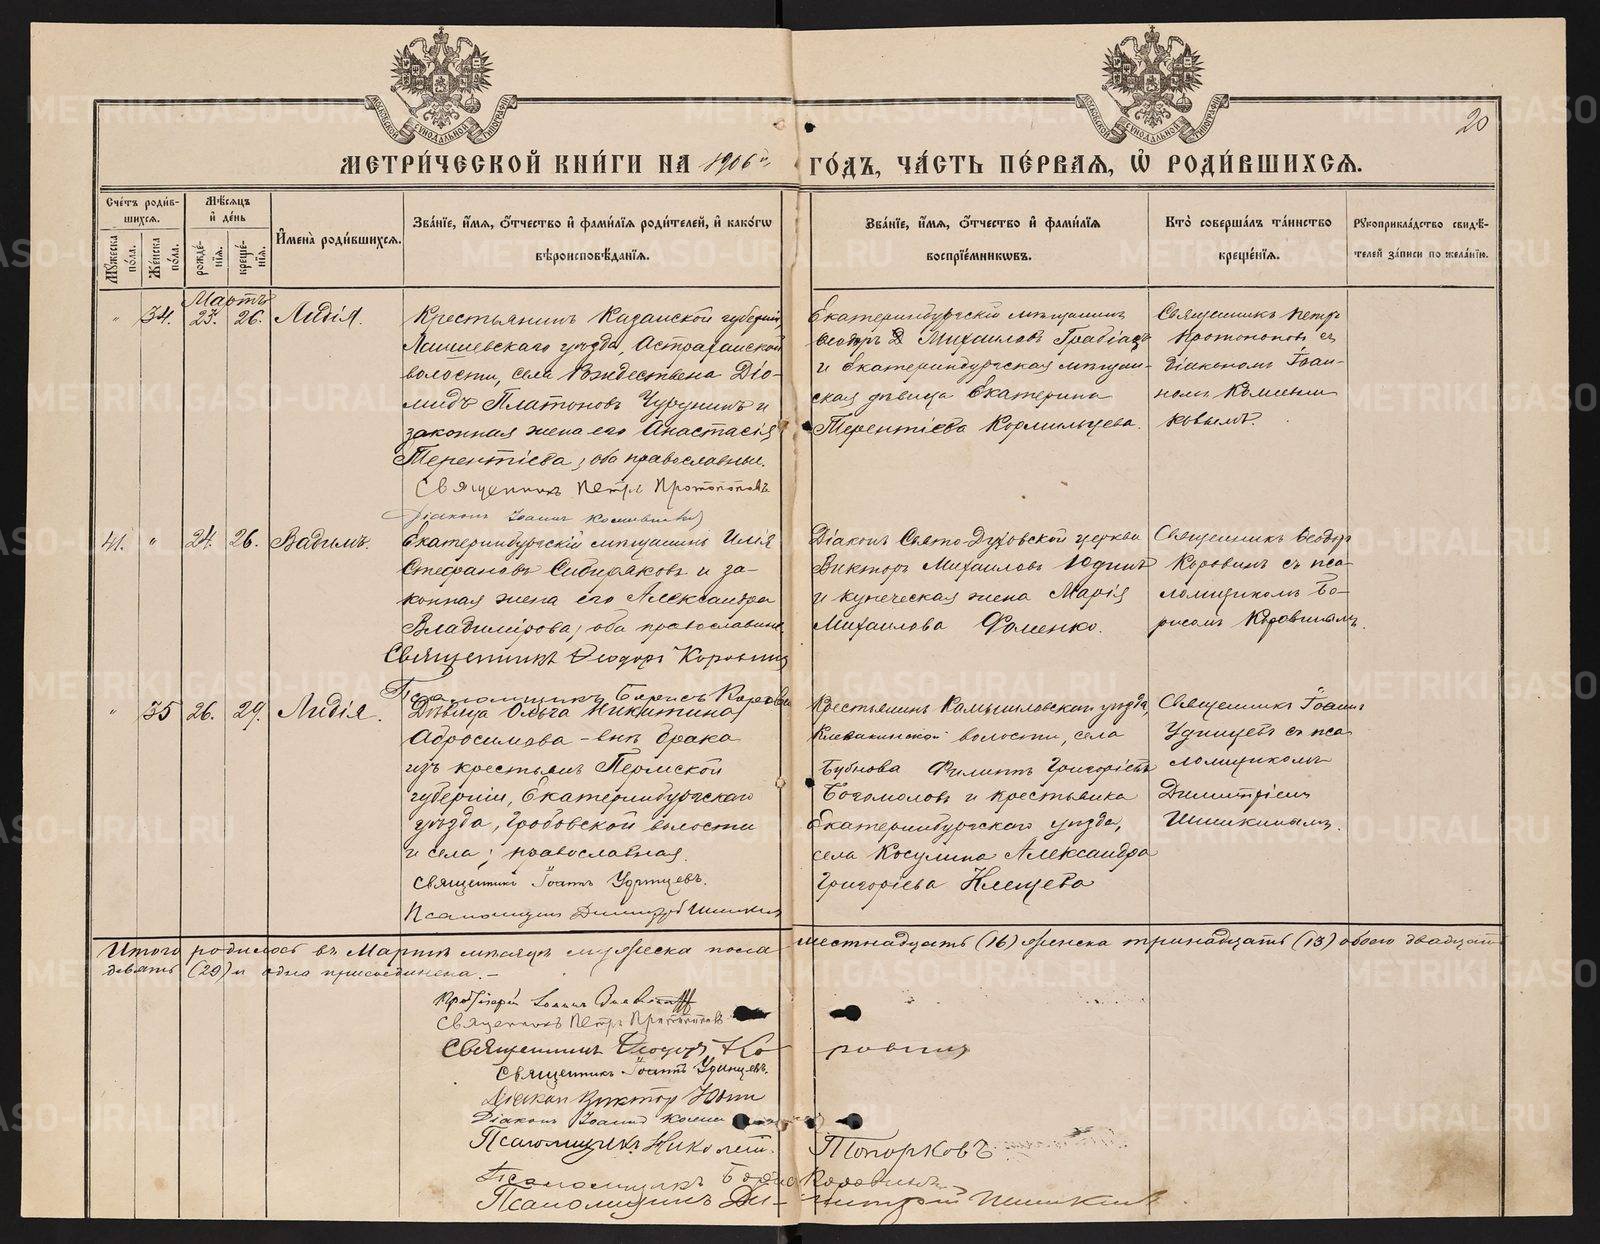 МОСКОВСКОЙ СѴНОДАЛЬНОЙ ТИПОГРАФІИ
МОСКОВСКОЙ СѴНОДАЛЬНОЙ ТИПОГРАФІИ
20
МЕТРИ́ЧЕСКОЙ КНИ́ГИ НА 1906й ГО́ДЪ, ЧА́СТЬ ПЕ́РВАЯ, Ѡ҆ РОДИ́ВШИХСЯ.
Сче́тъ роди́в-
шихся.
Мꙋ́жеска по́ла.
Же́нска по́ла.
Мѣ́сяцъ
и҆ де́нь
рожде́-
нїя.
креще́-
нїя.
И҆мена̀ роди́вшихся.
Зва́нїе, и҆́мя, ѻ҆́тчество и҆ фами́лїя роди́телей, и҆ како́гѡ
вѣроисповѣ́данїя.
Зва́нїе, и҆́мя, ѻ҆́тчество и҆ фами́лїя
воспрїе́мникѡвъ.
Кто̀ соверша́лъ та́инство
креще́нїя.
Рꙋкоприкла́дство свидѣ́-
телей за́писи по жела́нїю.
Мартъ
„ 34. 23. 26. Лидія.
Крестьянинъ Казанской губерніи,
Лаишевскаго уѣзда, Астраханской
волости, села Рождествена Діо-
мидъ Платоновъ Чурунинъ и
законная жена его Анастасія
Терентіева, оба православные.
Священникъ Петръ Протопоповъ
Діаконъ Іоаннъ
Екатеринбургскій мѣщанинъ
Ѳеодоръ Михаиловъ
и Екатеринбургская мѣщан-
ская дѣвица Екатерина
Терентіева Кормильцева.
Священникъ Петръ
Протопоповъ съ
діакономъ Іоан-
номъ
41. „ 24. 26. Вадимъ.
Екатеринбургскій мѣщанинъ Илія
Стефановъ Сибиряковъ и за-
конная жена его Александра
Владимірова, оба православные
Священникъ Ѳеодоръ Коровинъ
Псаломщикъ Борисъ Коровинъ
Діаконъ Свято-Духовской церкви
Викторъ Михаиловъ Юдинъ
и купеческая жена Марія
Михаилова Фоменко.
Священникъ Ѳеодоръ
Коровинъ съ пса-
ломщикомъ Бо-
рисомъ Коровинымъ.
„ 35 26. 29. Лидія.
Дѣвица Ольга Никитина
Абросимова - внѣ брака
изъ крестьянъ Пермской
губерніи, Екатеринбургскаго
уѣзда, Гробовской волости
и села, православная.
Священникъ Іоаннъ Удинцевъ.
Псаломщикъ Димитрій Шишкинъ
Крестьянинъ Камышловскаго уѣзда,
Клевакинской волости, села
Бубнова Филиппъ Григоріевъ
Богомоловъ и крестьянка
Екатеринбургскаго уѣзда,
села Косулина Александра
Григоріева Клещева
Священникъ Іоаннъ
Удинцевъ съ пса
ломщикомъ
Димитріемъ
Шишкинымъ.
Итого родилось въ Мартѣ мѣсяцѣ мужеска пола шестнадцать (16) женска тринадцать (13) обоего двадцать
девять (29) и одна присоединена. -
Протоіерей Іоаннъ
Священникъ Петръ Протопоповъ
Священникъ Ѳеодоръ Коровинъ
Священникъ Іоаннъ Удинцевъ.
Діаконъ Викторъ Юдинъ
Діаконъ Іоаннъ
Псаломщикъ Николай Топорковъ
Псаломщикъ Борисъ Коровинъ
Псаломщикъ Димитрій Шишкинъ
METRIKI.GASO-URAL.RU